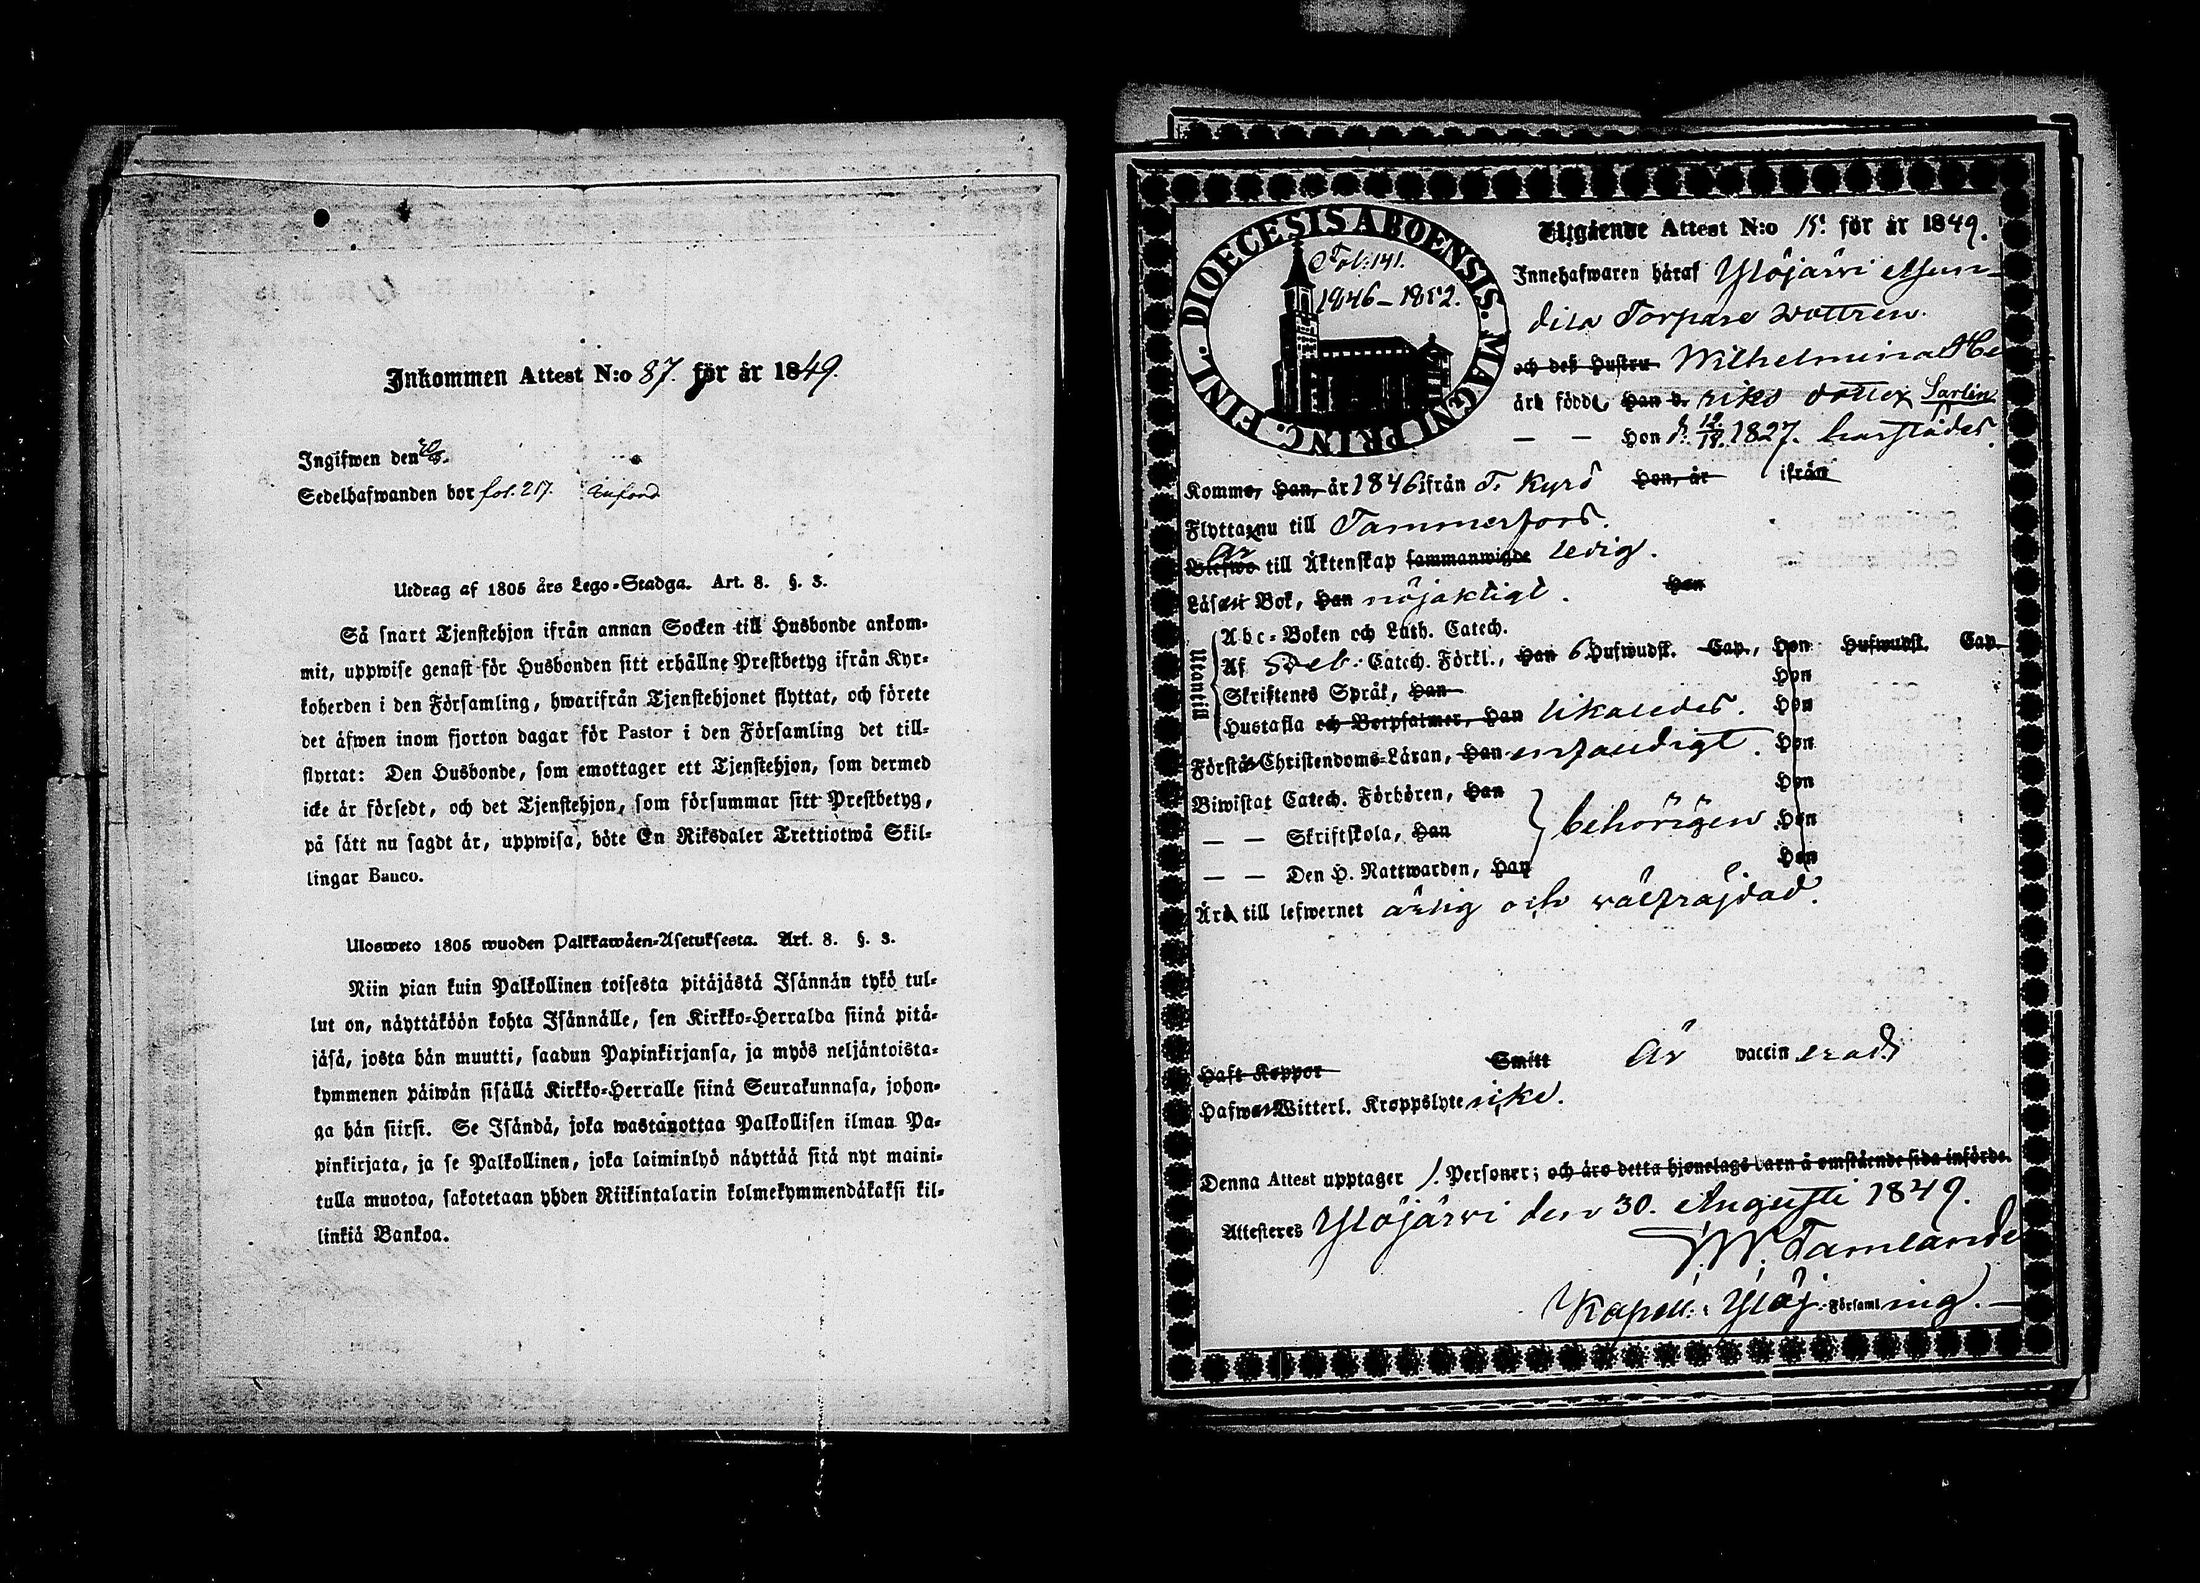 Inkommen Attest N:o 87. för år 1849.
Ingifwen den
Sedelhafwanden bor fol. 217.
Utdrag af 1805 års Lego-Stadga. Art. 8. §. 3.
Så snart Tjenstehjon ifrån annan Socken till Husbonde ankom-
mit, uppwise genast för Husbonden sitt erhållne Prestbetyg ifrån Kyr-
koherden i den Församling, hwarifrån Tjenstehjonet flyttat, och förete
det äfwen inom fjorton dagar för Pastor i den Församling det till-
flyttat: Den Husbonde, som emottager ett Tjenstehjon, som dermed
icke är försedt, och det Tjenstehjon, som försummar sitt Prestbetyg,
på sätt nu sagdt är, uppwisa, böte En Riksdaler Trettiotwå Skil-
lingar Banco.
Ulosweto 1805 wuoden Palkkawäen-Asetuksesta. Art. 8. §. 3.
Niin pian kuin Palkollinen toisesta pitäjästä Isännän tykö tul-
lut on, näyttäköön kohta Isännälle, sen Kirkko-Herralda siinä pitä-
jäsä, josta hän muutti, saadun Papinkirjansa, ja myös neljäntoista-
kymmenen päiwän sisällä Kirkko-Herralle siinä Seurakunnasa, johon-
ga hän siirsi. Se Isändä, joka wastanottaa Palkollisen ilman Pa-
pinkirjata, ja se Palkollinen, joka laiminlyö näyttää sitä nyt maini-
tulla muotoa, sakotetaan yhden Riikintalarin kolmekymmendäkaksi kil-
linkiä Bankoa.
DIOECESIS ABOENSIS. MAGNI PRINC. FINL.
Fol: 141.
1846–1852.
Utgående Attest N:o 15. för år 1849.
Innehafwaren häraf Ylöjärvi
Torpare dottren
och deß Hustru Wilhelmina He
äro födde, Han d. riks dotter Sarlin
— — Hon d. 12/12 1827. härstädes.
Komme, Han, år 1846 ifrån T. Kyrö Hon, år ifrån
Flytta nu till Tammerfors.
Blefwo är till Äktenskap sammanwigde ledig.
Läsa i Bok, Han nöjaktigt. Hon
Utantill
Abc-Boken och Luth. Catech.
Af Seb: Catech. Förkl., Han 6 Hufwudst. Cap., Hon Hufwudst. Cap.
Skriftenes Språk, Han Hon
Hustafla och Botpsalmer, Han likaledes. Hon
Förstå Christendoms-Läran, Han enfaldigt. Hon
Biwistat Catech. Förhören, Han Hon
— — Skriftskola, Han behörigen Hon
— — Den H. Nattwarden, Han Hon
Äro till lefwernet ärlig och välfräjdad.
Haft Koppor Smitt är vaccinerad.
Hafwa Witterl. Kroppslyte icke.
Denna Attest upptager 1. Personer; och äro detta hjonelags barn å omstående sida införde.
Attesteras Ylöjärvi den 30. Augusti 1849.
Tamlander
Kapell: i Ylöj. Församling.—